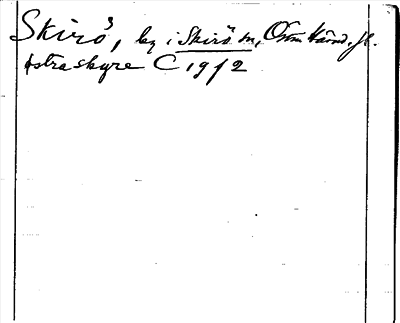 Skirö, by i Skirö sn, Östra härad. Jk.
Astraskyre C 1912